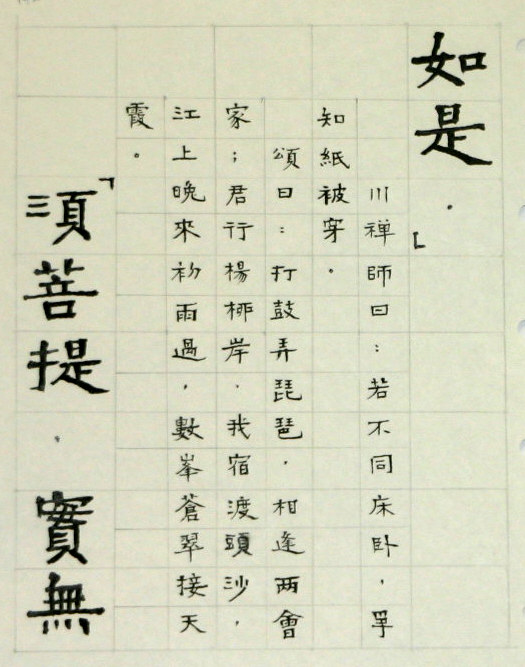 如是．」
川禪師曰：若不同床卧，爭
知紙被穿。
頌曰：打鼓弄琵琶，相逢两會
家；君行楊栁岸，我宿渡頭沙，
江上晚來初雨過，數峯蒼翠接天
霞。
「須菩提．實無